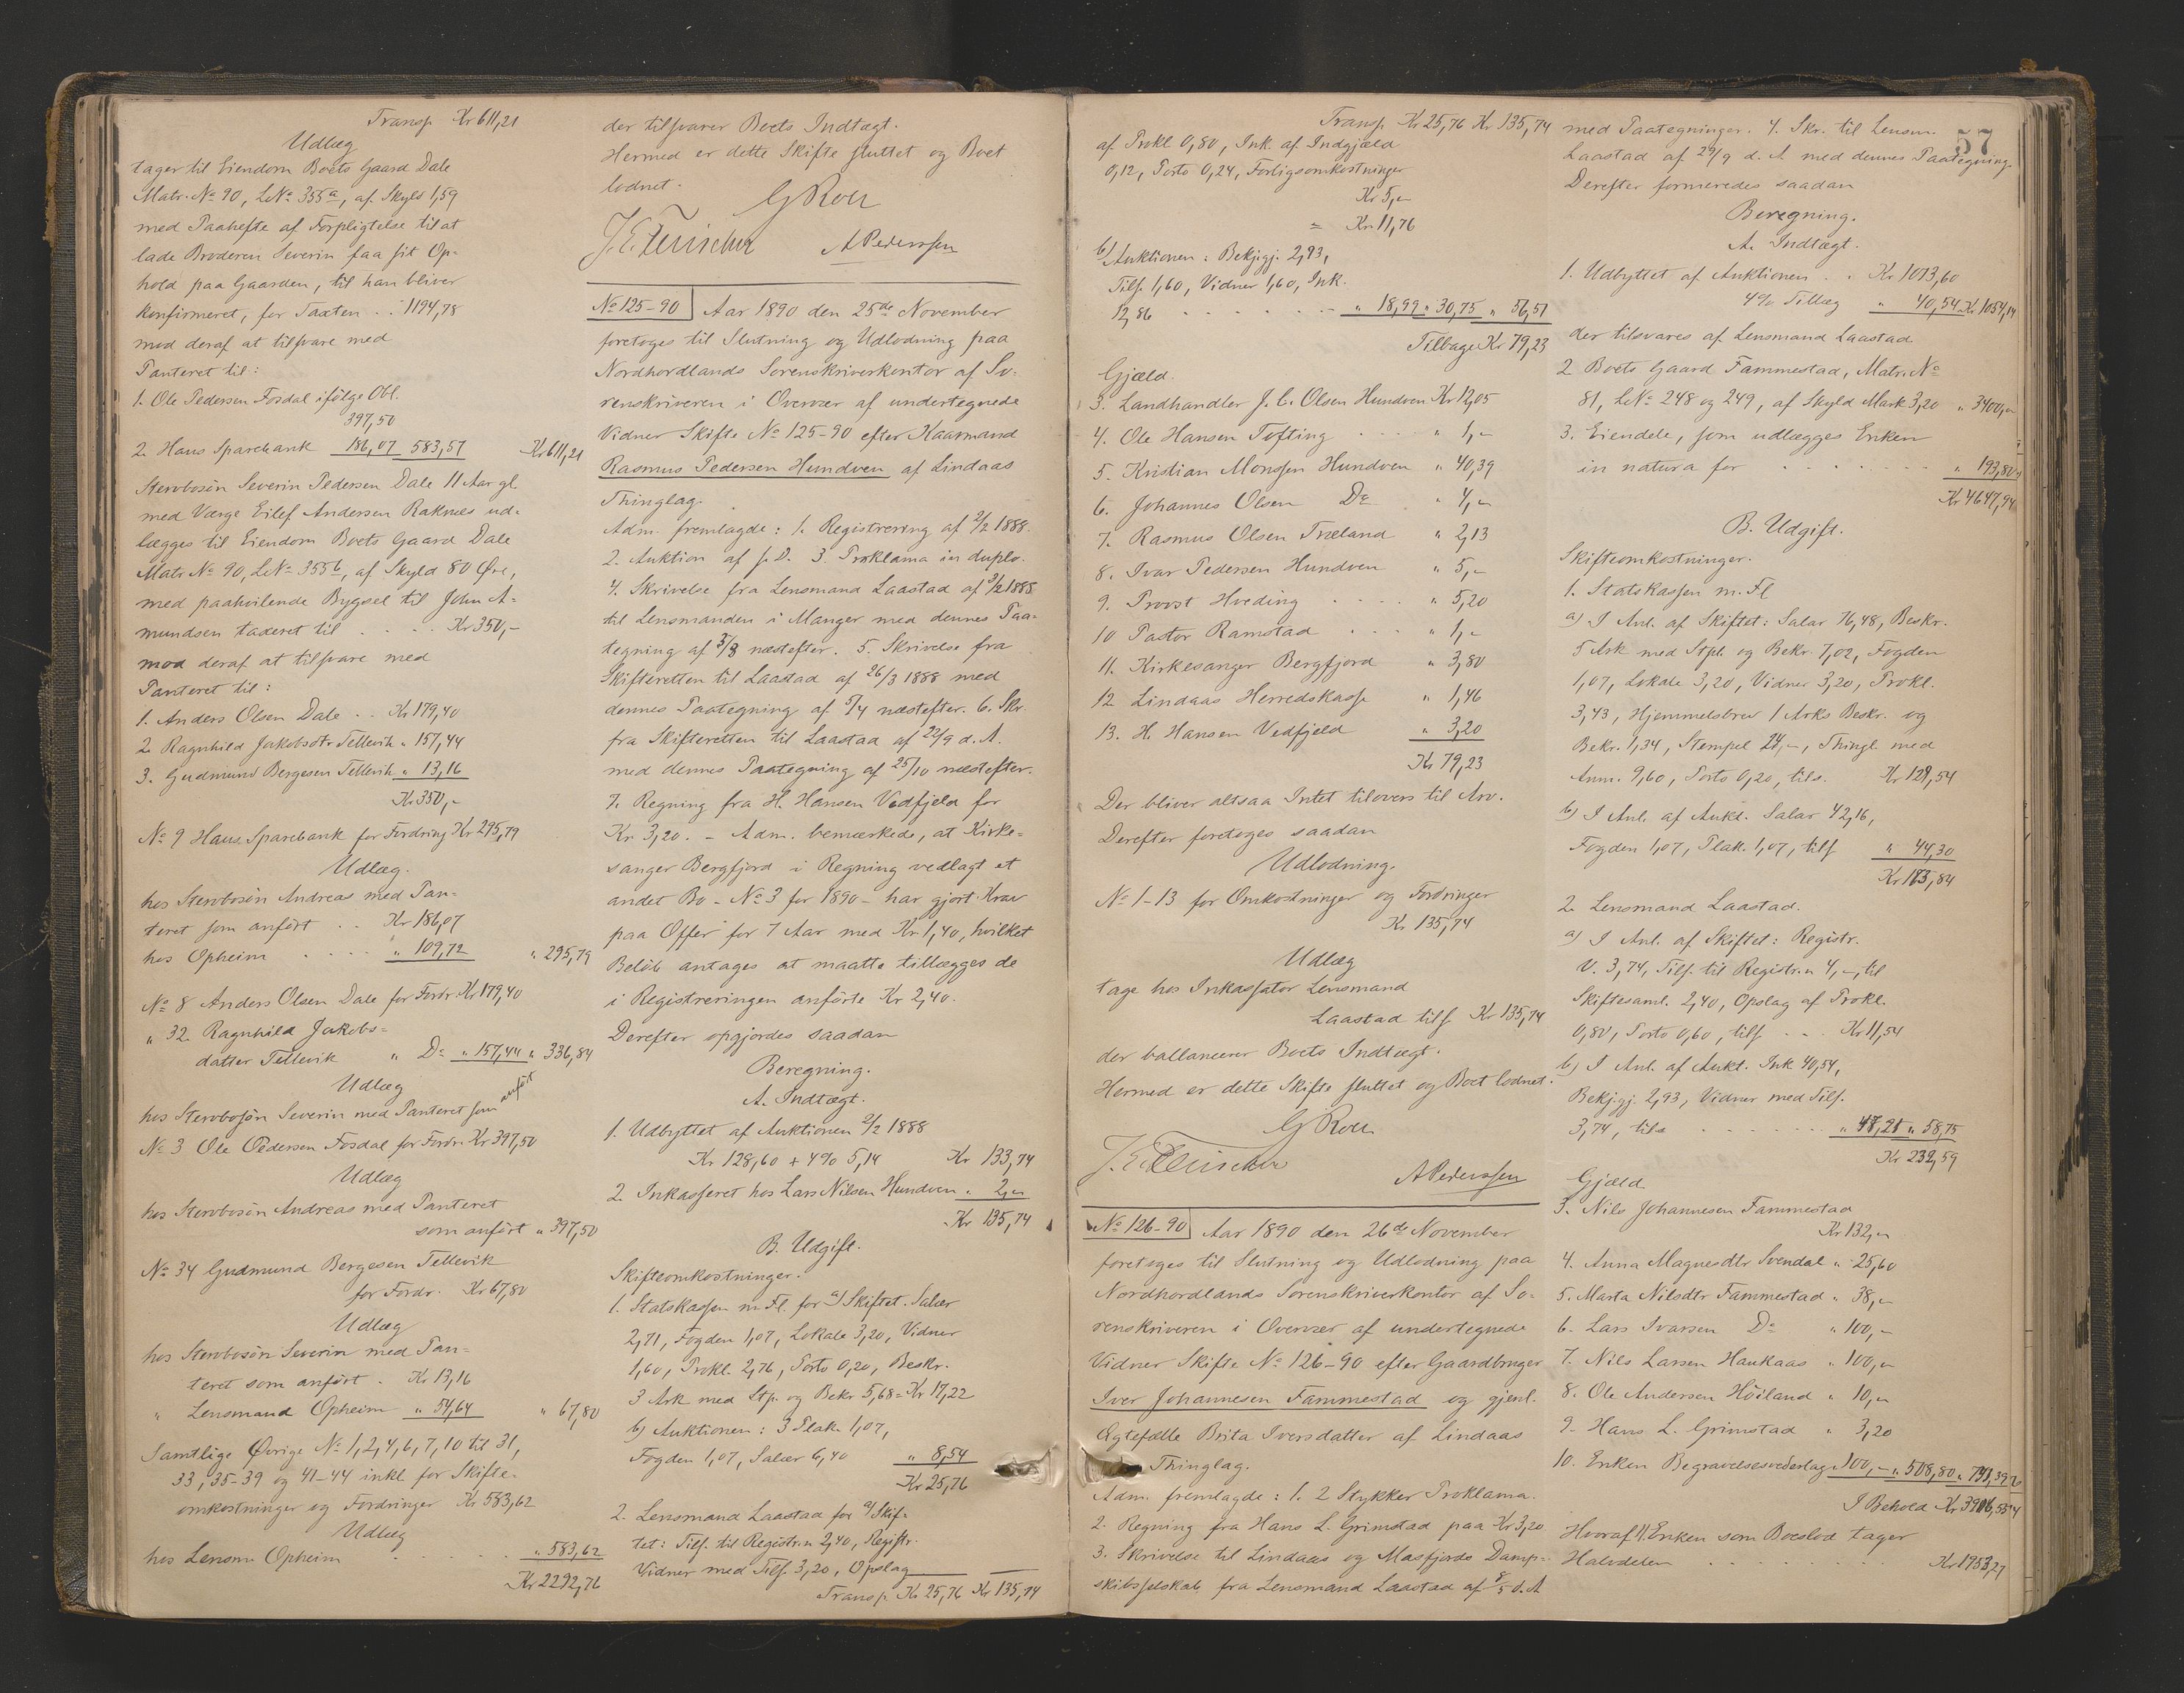 Transp Kr 611,21
Udlæg
tager til Eiendom Boets Gaard Dale
Matr. No 90, LNo 355a, af Skyld 1,59
med Paahefte af Forpligtelse til at
lade Broderen Severin faa sit Op-
hold paa Gaarden, til han bliver
konfirmeret, for Taxten . . 1194,78
mod deraf at tilsvare med
Panteret til:
1. Ole Pedersen Fosdal ifölge Obl.
397,50
2. Haus Sparebank 186,07 583,57 Kr 611,21
Stervbosön Severin Pedersen Dale 11 Aar gl.
med Værge Eilef Andersen Raknæs ud-
lægges til Eiendom Boets Gaard Dale
Matr. No 90, LNo 355b, af Skyld 80 Øre,
med paahvilende Bygsel til John A-
mundsen taxeret til . . . Kr 350,-
mod deraf at tilsvare med
Panteret til:
1. Anders Olsen Dale . . Kr 179,40
2. Ragnhild Jakobsdtr Tellevik " 157,44
3. Gudmund Bergesen Tellevik " 13,16
Kr 350,-
No 9 Haus Sparebank for Fordring Kr 295,79
Udlæg.
hos Stervbosön Andreas med Pan-
teret som anfört . . Kr 186,07
hos Opheim . . . . " 109,72 " 295,79
No 8 Anders Olsen Dale for Fordr. Kr 179,40
" 32. Ragnhild Jakobs=
datter Tellevik " Do " 157,44 " 336,84
Udlæg
hos Stervbosön Severin med Panteret som anfört
No 3 Ole Pedersen Fosdal for Fordr. Kr 397,50
Udlæg
hos Stervbosön Andreas med Panteret
som anfört " 397,50
No 34 Gudmund Bergesen Tellevik
for Fordr. Kr 67,80
Udlæg
hos Stervbosön Severin med Pan=
teret som anfört . Kr 13,16
" Lensmand Opheim " 54,64 " 67,80
Samtlige Øvrige No 1, 2, 4, 6, 7, 10 til 31,
33, 35-39 og 41-44 inkl for Skifte-
omkostninger og Fordringer Kr 583,62
Udlæg
hos Lensm Opheim . . . . " 583,62
Kr 2292,76
der tilsvarer Boets Indtægt.
Hermed er dette Skifte sluttet og Boet
lodnet.
G Roll
A Pederssen
No 125-90 Aar 1890 den 25de November
foretoges til Slutning og Udlodning paa
Nordhordlands Sorenskriverkontor af So-
renskriveren i Overvær af undertegnede
Vidner Skifte No 125-90 efter Kaarmand
Rasmus Pedersen Hundven af Lindaas
Thinglag.
Adm. fremlagde: 1. Registrering af 2/2 1888.
2. Auktion af s. D. 3. Proklama in duplo.
4. Skrivelse fra Lensmand Laastad af 3/2 1888
til Lensmanden i Manger med dennes Paa-
tegning af 3/3 næstefter. 5. Skrivelse fra
Skifteretten til Laastad af 26/3 1888 med
dennes Paategning af 5/4 næstefter. 6. Skr.
fra Skifteretten til Laastad af 22/9 d. A.
med dennes Paategning af 25/10 næstefter.
7. Regning fra H. Hansen Vedfjeld for
Kr 3,20. - Adm. bemærkede, at Kirke=
sanger Bergfjord i Regning vedlagt et
andet Bo - No 3 for 1890 - har gjort Krav
paa Offer for 7 Aar med Kr. 1,40, hvilket
Belöb antages at maatte tillægges de
i Registreringen anförte Kr 2,40.
Derefter opgjordes saadan
Beregning.
A. Indtægt.
1. Udbyttet af Auktionen 2/2 1888
Kr 128,60 + 4% 5,14 Kr 133,74
2. Inkasseret hos Lars Nilsen Hundven " 2,-
Kr 135,74
B. Udgift.
Skifteomkostninger.
1. Statskassen m. Fl. for a) Skiftet. Salær
2,71, Fogden 1,07, Lokale 3,20, Vidner
1,60, Prokl. 2,76, Porto 0,20, Beskr.
3 Ark med Stp. og Bekr 5,68 = Kr 17,22
b) Auktionen: 3 Plak. 1,07,
Fogden 1,07, Salær 6,40 " 8,54
Kr 25,76
2. Lensmand Laastad for a) Skif-
tet: Tilf. til Registr. 2,40, Registr.
Vidner med Tilf. 3,20, Opslag
Transp. Kr 25,76 Kr 135,74
57
Transp. Kr 25,76 Kr 135,74
af Prokl 0,80, Ink. af Indgjæld
0,12, Porto 0,24, Forligsomkostninger
Kr 5,-
= Kr 11,76
b) Auktionen: Bekjgj. 2,93,
Tilf. 1,60, Vidner 1,60, Ink.
12,86 . . . . " 18,99 " 30,75 " 56,51
Tilbage Kr 79,23
Gjæld.
3. Landhandler J. C. Olsen Hundven Kr 12,05
4. Ole Hansen Tofting . . . " 1,-
5. Kristian Monssen Hundven " 40,39
6. Johannes Olsen Do " 4,-
7. Rasmus Olsen Træland " 2,13
8. Ivar Pedersen Hundven " 5,-
9. Provst Hveding . . . . " 5,20
10 Pastor Ramstad . . . " 1,-
11. Kirkesanger Bergfjord " 3,80
12. Lindaas Herredskasse " 1,46
13. H. Hansen Vedfjeld " 3,20
Kr 79,23
Der bliver altsaa Intet tilovers til Arv.
Derefter foretoges saadan
Udlodning.
No 1-13 for Omkostninger og Fordringer
Kr 135,74
Udlæg
tage hos Inkassator Lensmand
Laastad tils. Kr 135,74
der ballancerer Boets Indtægt.
Hermed er dette Skifte sluttet og Boet lodnet.
G Roll
A Pederssen
No 126-90 Aar 1890 den 26de November
foretoges til Slutning og Udlodning paa
Nordhordlands Sorenskriverkontor af So-
renskriveren i Overvær af undertegnede
Vidner Skifte No 126-90 efter Gaardbruger
Iver Johannesen Fammestad og gjenl.
Ægtefælle Brita Iversdatter af Lindaas
Thinglag.
Adm. fremlagde: 1. 2 Stykker Proklama.
2. Regning fra Hans L. Grimstad paa Kr 3,20
3. Skrivelse til Lindaas og Masfjords Damp=
skibsselskab fra Lensmand Laastad af 8/5 d. A
med Paategninger. 4. Skr. til Lensm.
Laastad af 29/9 d. A. med dennes Paategning.
Derefter formeredes saadan
Beregning.
A. Indtægt.
1. Udbyttet af Auktionen . . Kr 1013,60
4% Tillæg " 40,54 Kr 1054,14
der tilsvares af Lensmand Laastad.
2 Boets Gaard Fammestad, Matr. No
81, LNo 248 og 249, af Skyld Mark 3,20 " 3400,-
3. Eiendele, som udlægges Enken
in natura for . . . . " 193,80
Kr 4647,94
B. Udgift.
Skifteomkostninger.
1. Statskassen m. Fl
a) I Anl. af Skiftet: Salær 76,48, Beskr.
5 Ark med Stpl. og Bekr. 7,02, Fogden
1,07, Lokale 3,20, Vidner 3,20, Prokl.
3,43, Hjemmelsbrev 1 Arks Beskr. og
Bekr. 1,34, Stempel 24,-, Thingl. med
Anm. 9,60, Porto 0,20, tils. Kr 129,54
b) I Anl. af Aukt. Salær 42,16,
Fogden 1,07, Plak. 1,07, tils " 44,30
Kr 173,84
2. Lensmand Laastad.
a) I Anl. af Skiftet: Registr.
V. 3,74, Tilf. til Registr. 4,-, til
Skiftesaml. 2,40, Opslag af Prokl.
0,80, Porto 0,60, tils . . Kr 11,54
b) I Anl. af Aukt. Ink 40,54,
Bekjgj. 2,93, Vidner med Tilf.
3,74, tils . . . . " 47,21 " 58,75
Kr 232,59
Gjæld
3. Nils Johannesen Fammestad
Kr 132,-
4. Anna Magnesdtr Svendal " 25,60
5. Marta Nilsdtr Fammestad " 38,-
6. Lars Ivarsen Do " 100,-
7. Nils Larsen Haukaas " 100,-
8. Ole Andersen Höiland " 10,-
9. Hans L. Grimstad " 3,20
10. Enken Begravelsesvederlag " 100,- " 508,80
I Behold
Hvoraf Enken som Boeslod tager
Halvdelen . . . . Kr 1953,27